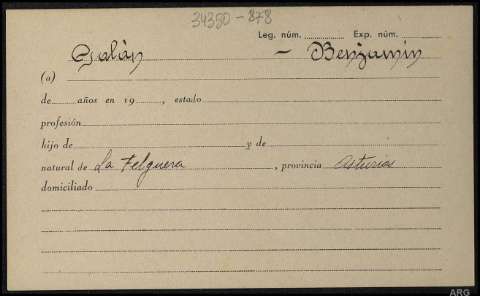 34350-878
Leg. núm. Exp. núm.
Galán - Benjamin
(a)
de años en 19 , estado
profesión
hijo de y de
natural de La Felguera , provincia Asturias
domiciliado
ARG